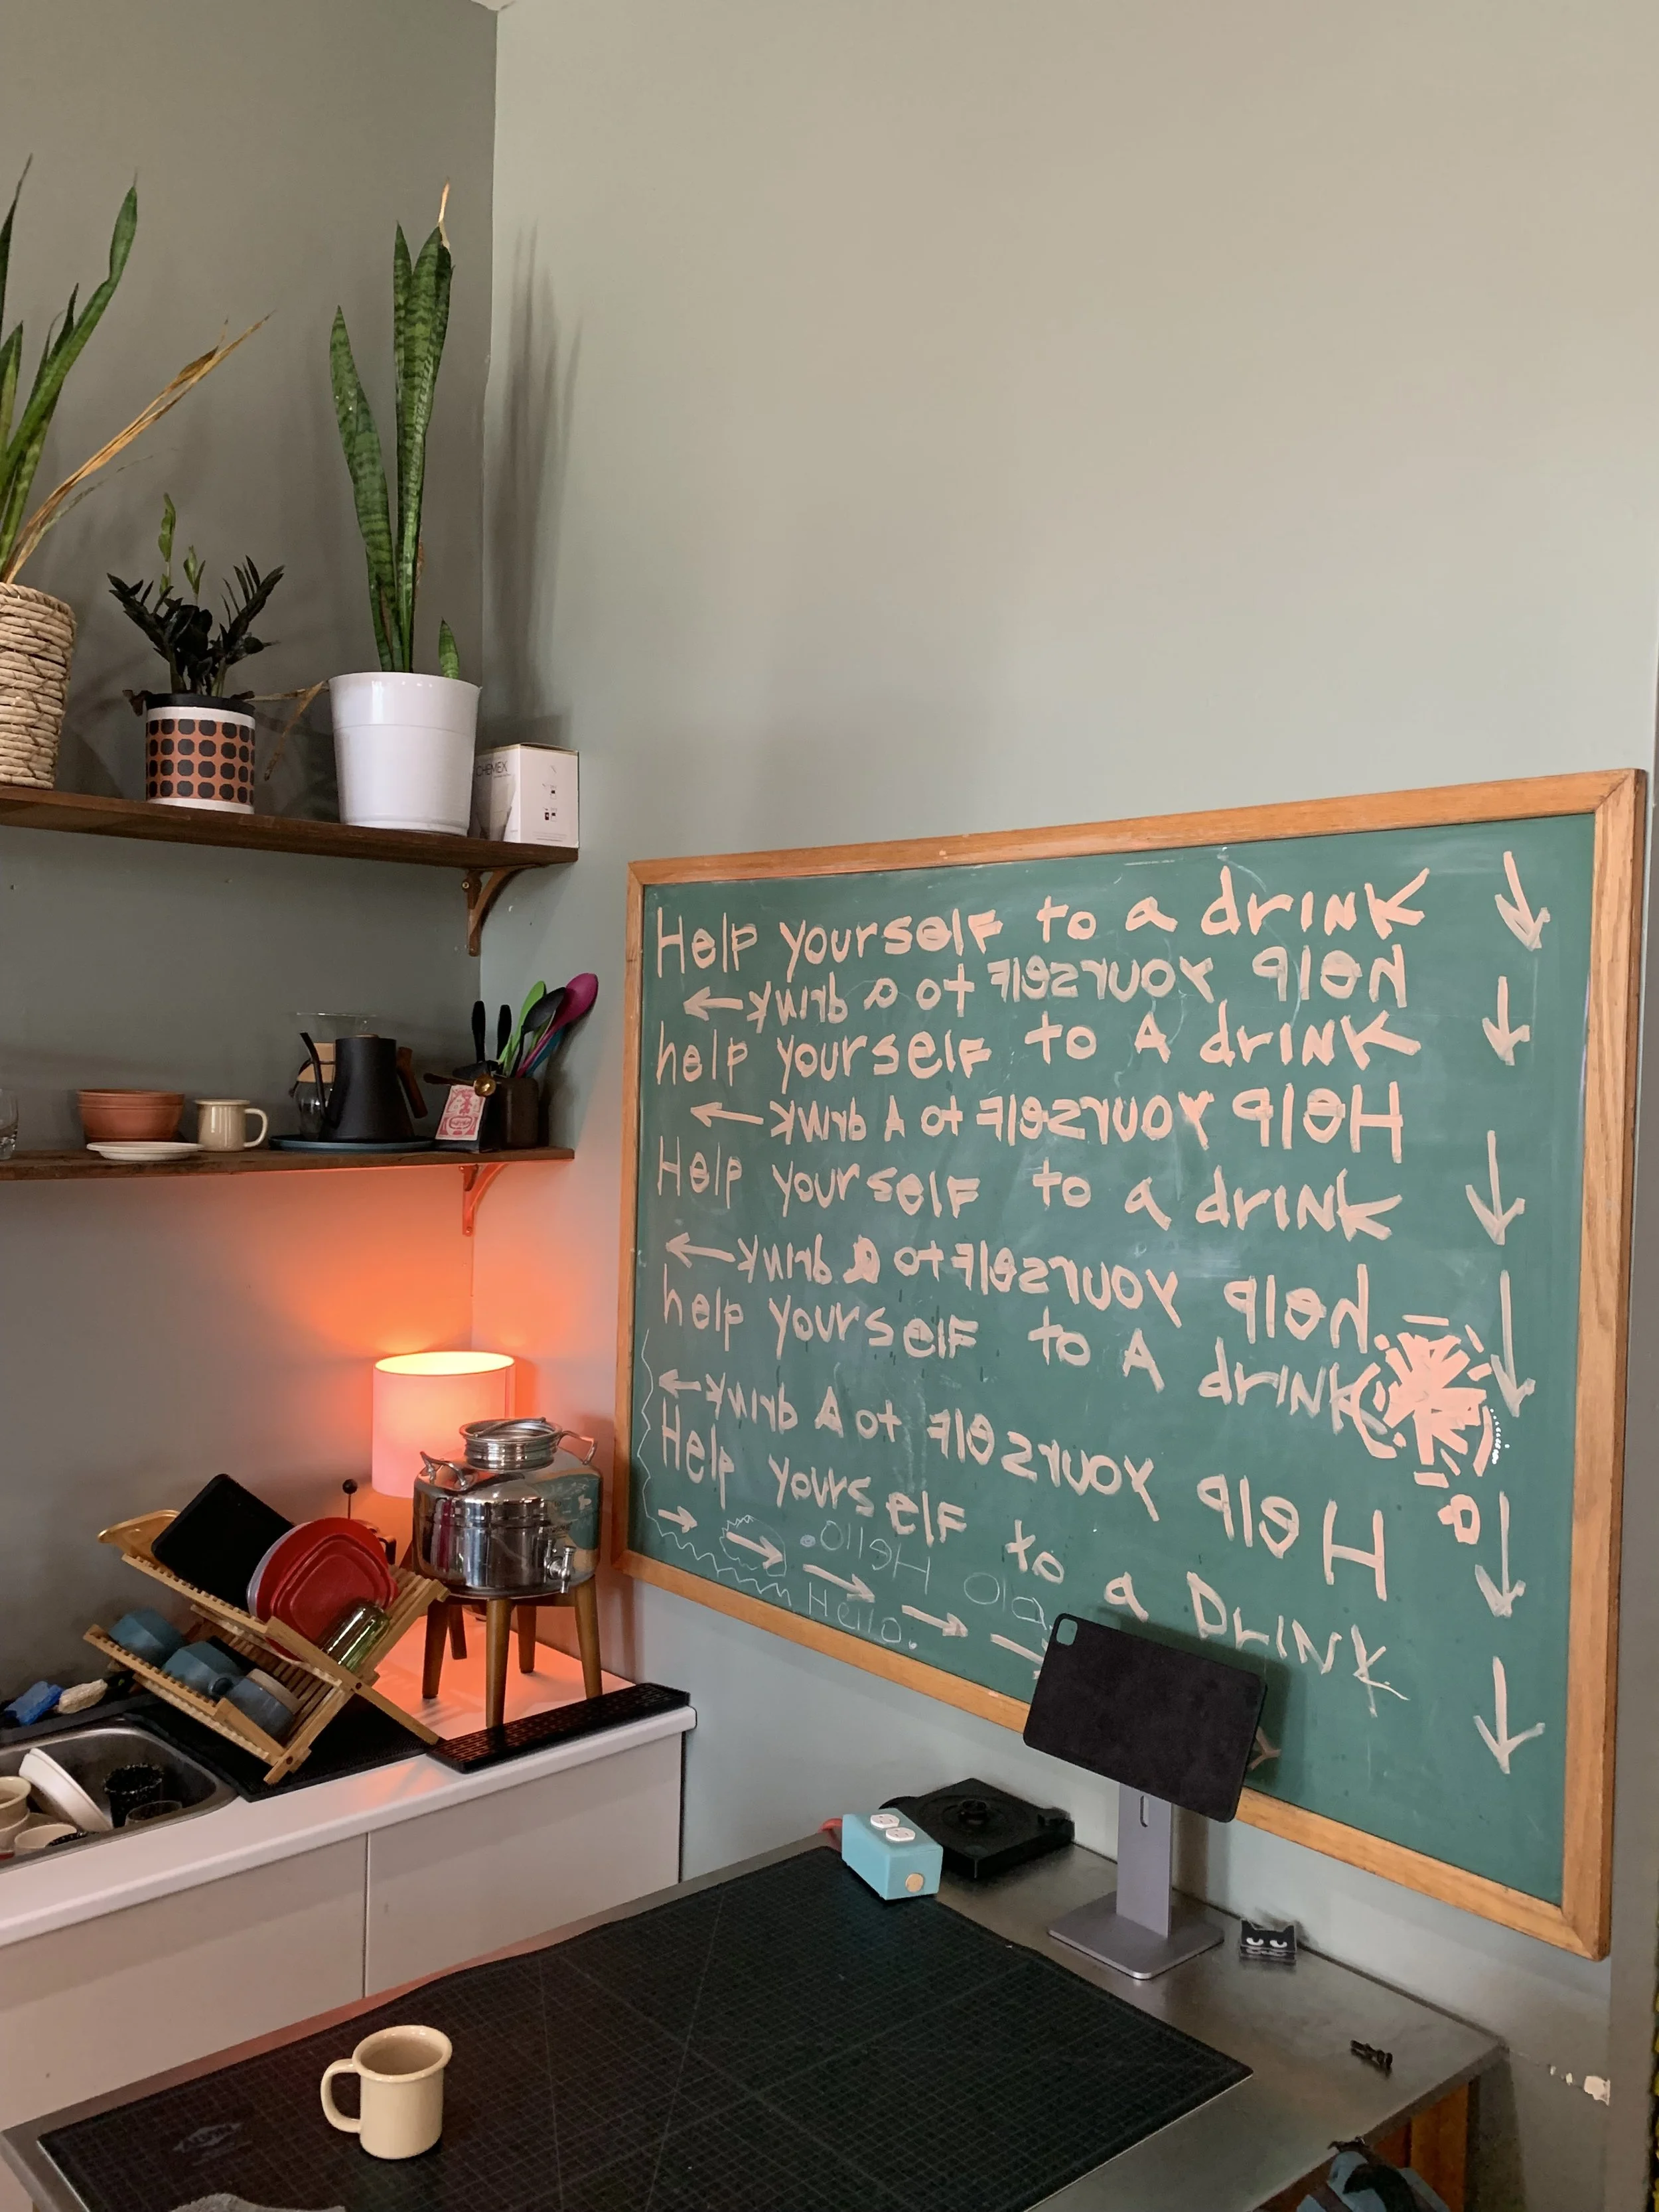 CHEMEX
Help yourself to a drINK
help yourself to a drink
help yourself to A drINK
Help yourself to A drink
Help yourself to a drINK
help yourself to a drink
help yourself to A drINK
Help yourself to A drink
Help yourself to a DrINK
Hello
Hello.
Ola